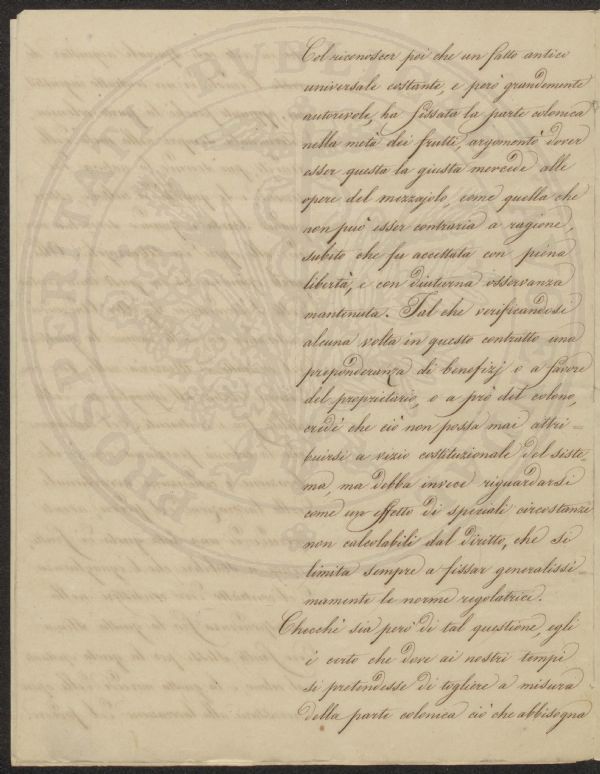 Col riconoscer poi che un fatto antico
universale costante, e però grandemente
autorevole, ha fissata la parte colonica
nella metà dei frutti, argomentò dover
esser questa la giusta mercede alle
opere del mezzajolo, come quella che
non può esser contraria a ragione,
subito che fu accettata con piena
libertà, e con diuturna osservanza
mantenuta. Tal che verificandosi
alcuna volta in questo contratto una
preponderanza di benefizj o a favore
del proprietario, o a prò del colono,
credè che ciò non possa mai attri=
buirsi a vizio costituzionale del siste
ma, ma debba invece riguardarsi
come un effetto di speziali circostanze
non calcolabili dal diritto, che si
limita sempre a fissar generalissi
mamente le norme regolatrici.
Checchè sia però di tal questione, egli
è certo che dove ai nostri tempi
si pretendesse di togliere a misura
della parte colonica ciò che abbisogna